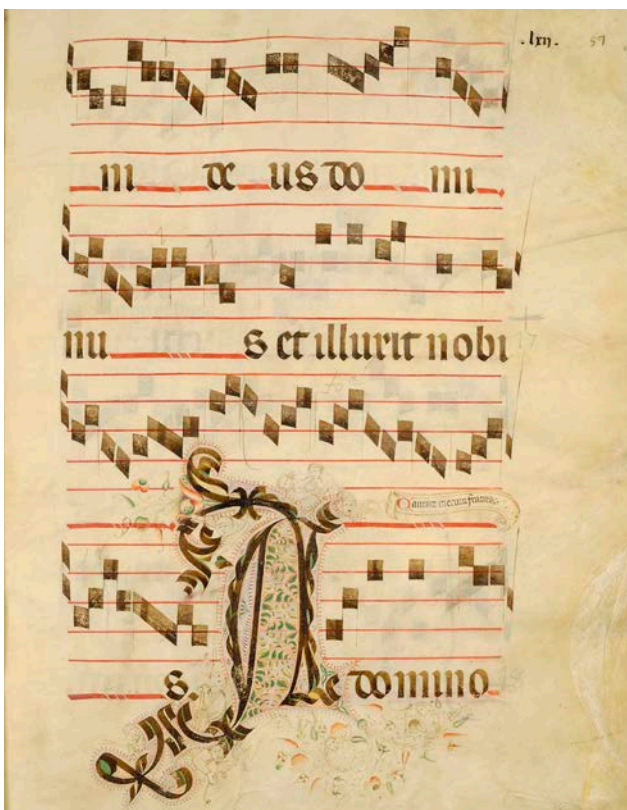 .lxii. 57
ni de us do mi
nu s et illuxit nobi
mecum
s. A domino